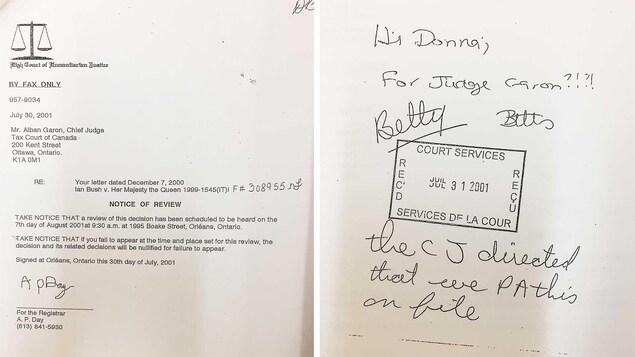 High Court of Humanitarian Justice
BY FAX ONLY
957-9034
July 30, 2001
Mr. Alban Garon, Chief Judge
Tax Court of Canada
200 Kent Street
Ottawa, Ontario.
K1A 0M1
RE: Your letter dated December 7, 2000
Ian Bush v. Her Majesty the Queen 1999-1545(IT)I F# 308955
NOTICE OF REVIEW
TAKE NOTICE that a review of this decision has been scheduled to be heard on the
7th day of August 2001at 9:30 a.m. at 1995 Boake Street, Orléans, Ontario.
TAKE NOTICE that if you fail to appear at the time and place set for this review, the
decision and its related decisions will be nullified for failure to appear.
Signed at Orléans, Ontario this 30th day of July, 2001
A P Day
For the Registrar
A. P. Day
(613) 841-5930
Hi Donna;
For Judge Garon?!?!
Betty Betts
COURT SERVICES
REC'D
JUIL 31 2001
REÇU
SERVICES DE LA COUR
the CJ directed
that we PA this
on file